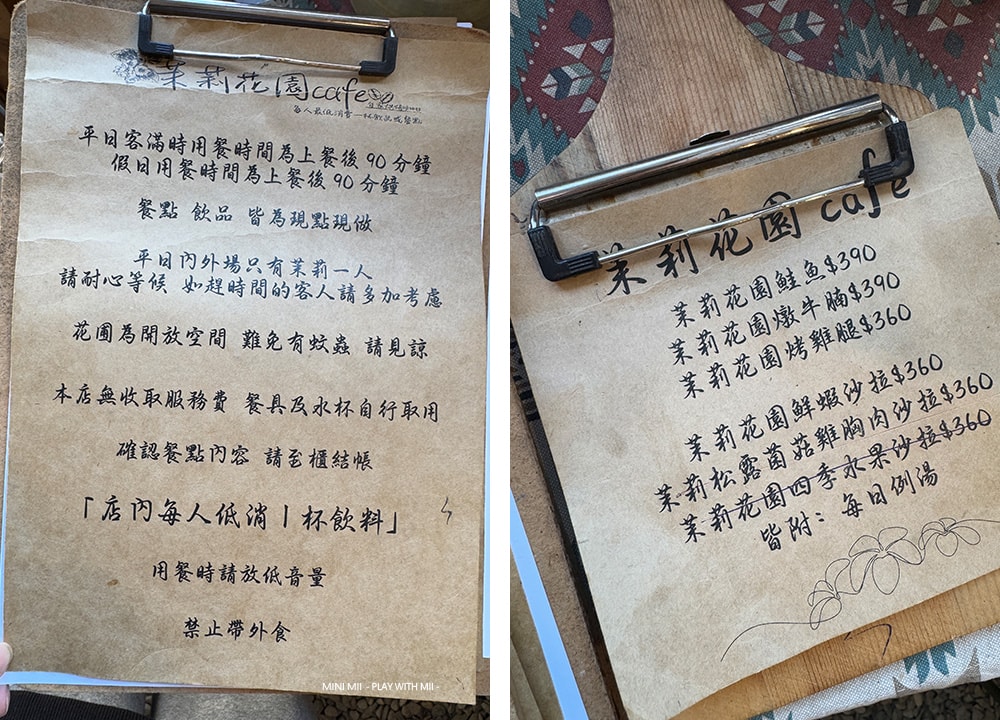 茉莉花園cafe
每人最低消費一杯飲品或餐點
平日客滿時用餐時間為上餐後 90 分鐘
假日用餐時間為上餐後 90 分鐘
餐點 飲品 皆為現點現做
平日內外場只有茉莉一人
請耐心等候 如趕時間的客人請多加考慮
花圃為開放空間 難免有蚊蟲 請見諒
本店無收取服務費 餐具及水杯自行取用
確認餐點內容 請至櫃結帳
「店內每人低消1杯飲料」
用餐時請放低音量
禁止帶外食
MINI MII - PLAY WITH MII -
茉莉花園 cafe
茉莉花園鮭魚$390
茉莉花園燉牛腩$390
茉莉花園烤雞腿$360
茉莉花園鮮蝦沙拉$360
茉莉松露菌菇雞胸肉沙拉$360
茉莉花園四季水果沙拉$360
皆附：每日例湯